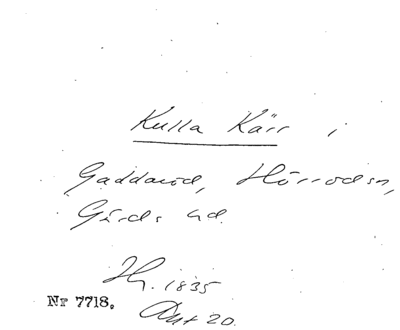 Kulla Kärr i
Gaddaröd, Hörröds sn,
Gärds hd.
Hy. 1835
Akt 20.
Nr 7718.